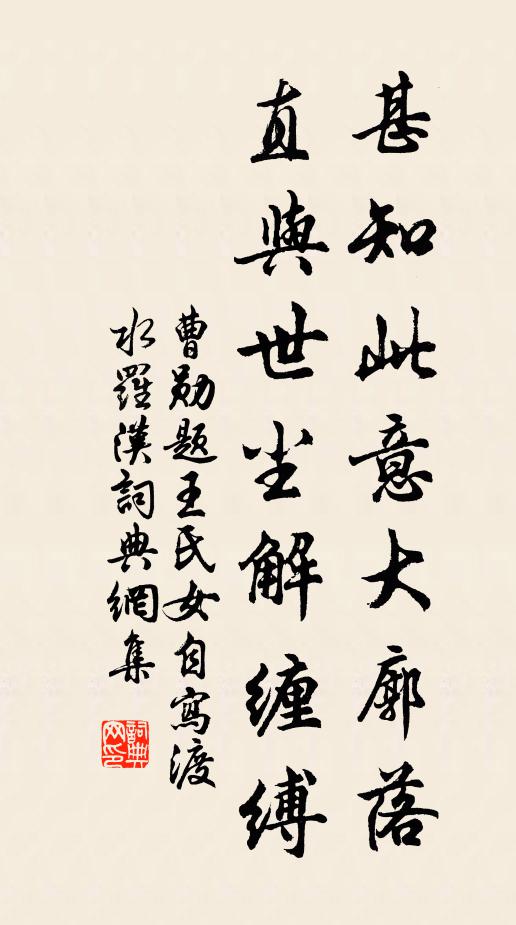 甚知此意大廓落
直與世尘解纏縛
曹勛題王氏女自寫渡
水羅漢詞典網集
詞典網印